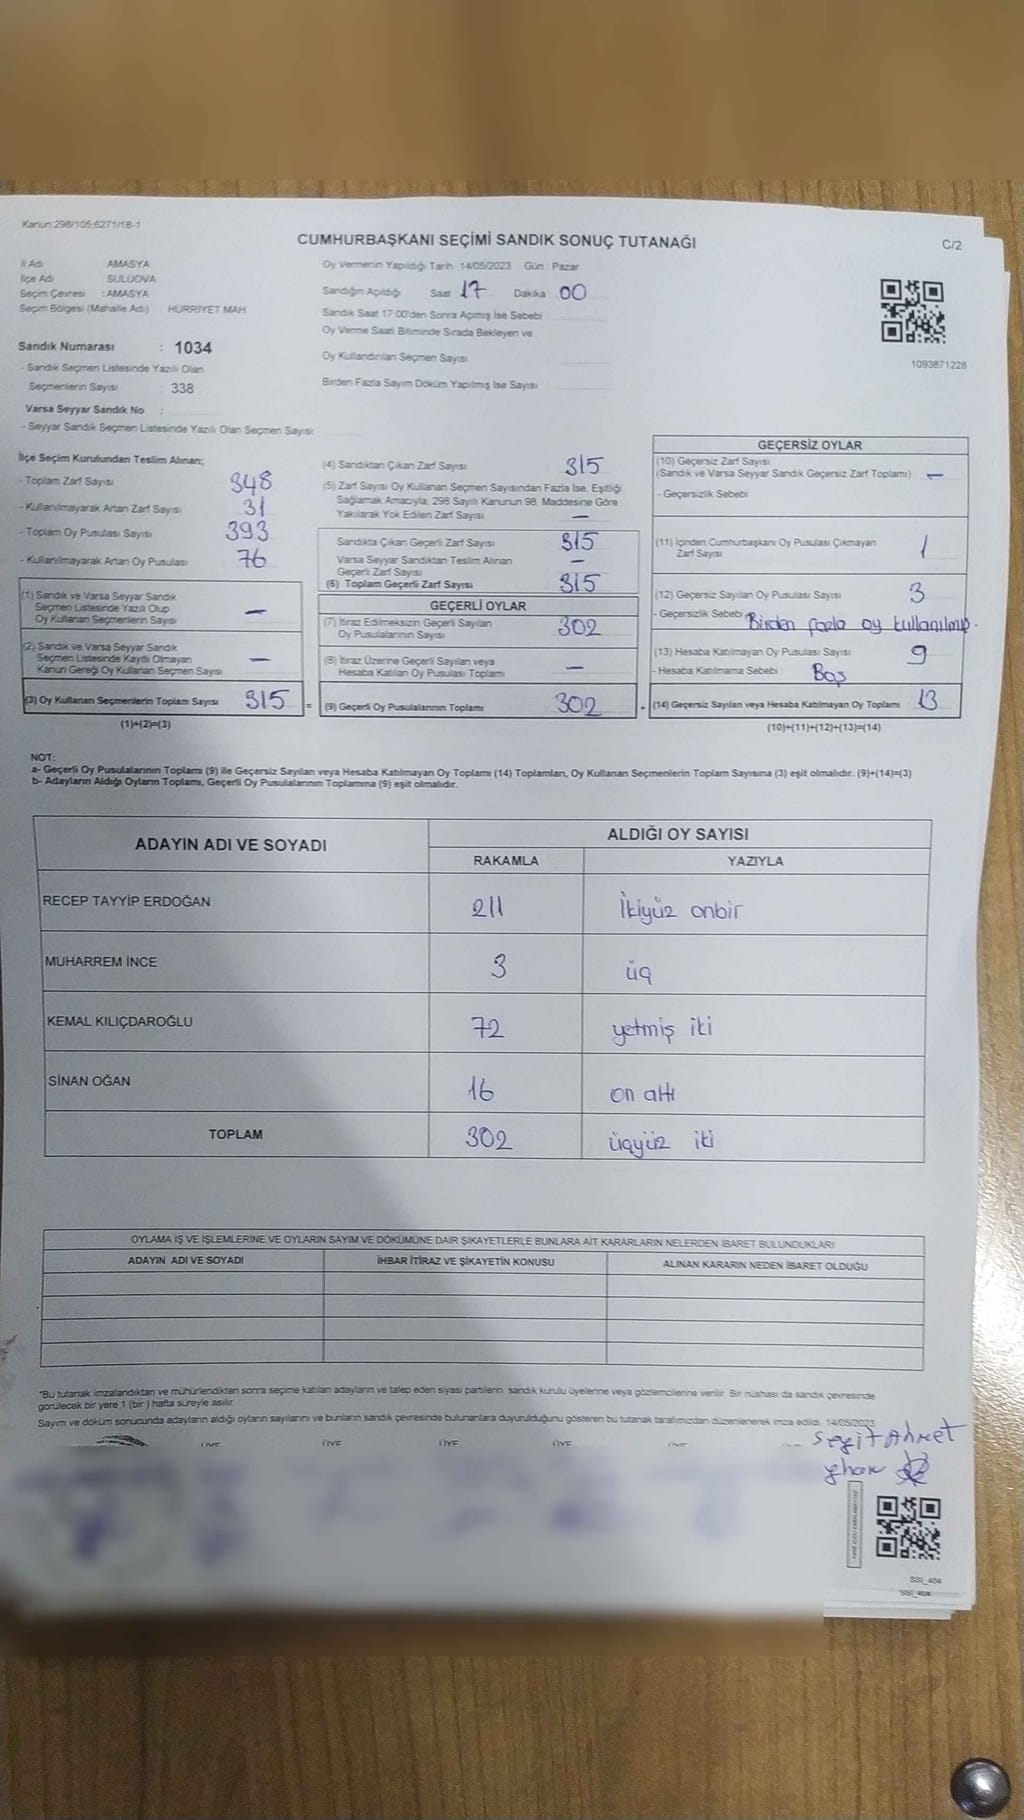 Kanun:298/105;6271/18-1
CUMHURBAŞKANI SEÇİMİ SANDIK SONUÇ TUTANAĞI
C/2
İl Adı AMASYA
İlçe Adı SULUOVA
Seçim Çevresi : AMASYA
Seçim Bölgesi (Mahalle Adı) HÜRRİYET MAH.
Sandık Numarası : 1034
- Sandık Seçmen Listesinde Yazılı Olan
Seçmenlerin Sayısı : 338
Varsa Seyyar Sandık No :
- Seyyar Sandık Seçmen Listesinde Yazılı Olan Seçmen Sayısı:
Oy Vermenin Yapıldığı Tarih :14/05/2023 Gün : Pazar
Sandığın Açıldığı Saat 17 Dakika 00
Sandık Saat 17:00'den Sonra Açımış İse Sebebi
Oy Verme Saati Bitiminde Sırada Bekleyen ve
Oy Kullandırılan Seçmen Sayısı
Birden Fazla Sayım Döküm Yapılmış İse Sayısı
1093871228
İlçe Seçim Kurulundan Teslim Alınan;
- Toplam Zarf Sayısı 348
- Kullanılmayarak Artan Zarf Sayısı 31
- Toplam Oy Pusulası Sayısı 393
- Kullanılmayarak Artan Oy Pusulası 76
(1) Sandık ve Varsa Seyyar Sandık
Seçmen Listesinde Yazılı Olup
Oy Kullanan Seçmenlerin Sayısı —
(2) Sandık ve Varsa Seyyar Sandık
Seçmen Listesinde Kayıtlı Olmayan
Kanun Gereği Oy Kullanan Seçmen Sayısı —
(3) Oy Kullanan Seçmenlerin Toplam Sayısı 315 =
(1)+(2)=(3)
(4) Sandıktan Çıkan Zarf Sayısı 315
(5) Zarf Sayısı Oy Kullanan Seçmen Sayısından Fazla İse, Eşitliği
Sağlamak Amacıyla; 298 Sayılı Kanunun 98. Maddesine Göre
Yakılarak Yok Edilen Zarf Sayısı —
Sandıkta Çıkan Geçerli Zarf Sayısı 315
Varsa Seyyar Sandıktan Teslim Alınan
Geçerli Zarf Sayısı —
(6) Toplam Geçerli Zarf Sayısı 315
GEÇERLİ OYLAR
(7) İtiraz Edilmeksizin Geçerli Sayılan
Oy Pusulalarının Sayısı 302
(8) İtiraz Üzerine Geçerli Sayılan veya
Hesaba Katılan Oy Pusulası Toplamı —
(9) Geçerli Oy Pusulalarının Toplamı 302 +
GEÇERSİZ OYLAR
(10) Geçersiz Zarf Sayısı
(Sandık ve Varsa Seyyar Sandık Geçersiz Zarf Toplamı) —
- Geçersizlik Sebebi
(11) İçinden Cumhurbaşkanı Oy Pusulası Çıkmayan
Zarf Sayısı 1
(12) Geçersiz Sayılan Oy Pusulası Sayısı 3
- Geçersizlik Sebebi Birden fazla oy kullanılmış.
(13) Hesaba Katılmayan Oy Pusulası Sayısı 9
- Hesaba Katılmama Sebebi Boş
(14) Geçersiz Sayılan veya Hesaba Katılmayan Oy Toplamı 13
(10)+(11)+(12)+(13)=(14)
NOT:
a- Geçerli Oy Pusulalarının Toplamı (9) ile Geçersiz Sayılan veya Hesaba Katılmayan Oy Toplamı (14) Toplamları, Oy Kullanan Seçmenlerin Toplam Sayısına (3) eşit olmalıdır. (9)+(14)=(3)
b- Adayların Aldığı Oyların Toplamı, Geçerli Oy Pusulalarının Toplamına (9) eşit olmalıdır.
ADAYIN ADI VE SOYADI
ALDIĞI OY SAYISI
RAKAMLA YAZIYLA
RECEP TAYYİP ERDOĞAN 211 İkiyüz onbir
MUHARREM İNCE 3 üç
KEMAL KILIÇDAROĞLU 72 yetmiş iki
SİNAN OĞAN 16 on altı
TOPLAM 302 üçyüz iki
OYLAMA İŞ VE İŞLEMLERİNE VE OYLARIN SAYIM VE DÖKÜMÜNE DAİR ŞİKAYETLERLE BUNLARA AİT KARARLARIN NELERDEN İBARET BULUNDUKLARI
ADAYIN ADI VE SOYADI İHBAR İTİRAZ VE ŞİKAYETİN KONUSU ALINAN KARARIN NEDEN İBARET OLDUĞU
*Bu tutanak imzalandıktan ve mühürlendikten sonra seçime katılan adayların ve talep eden siyasi partilerin sandık kurulu üyelerine veya gözlemcilerine verilir. Bir nüshası da sandık çevresinde
görülecek bir yere 1 (bir) hafta süreyle asılır.
Sayım ve döküm sonucunda adayların aldığı oyların sayılarını ve bunların sandık çevresinde bulunanlara duyurulduğunu gösteren bu tutanak tarafımızdan düzenlenerek imza edildi. 14/05/2023
ÜYE ÜYE ÜYE ÜYE ÜYE
Seyit Ahmet
SSI_404
SSI_404